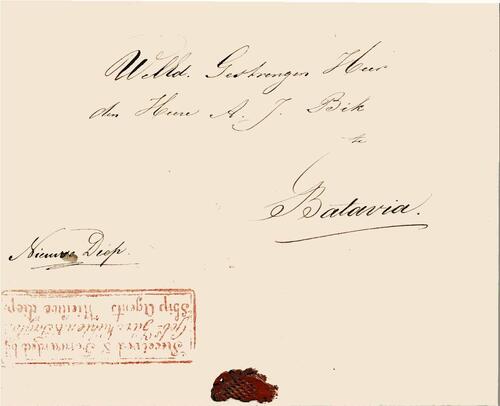 WelEd. Gestrengen Heer
den Heere A. J. Bik
te
Batavia.
Nieuwe Diep.
Received & Forwarded by
Gebrs. Zurmühlen &
Ship Agents Nieuwe diep.